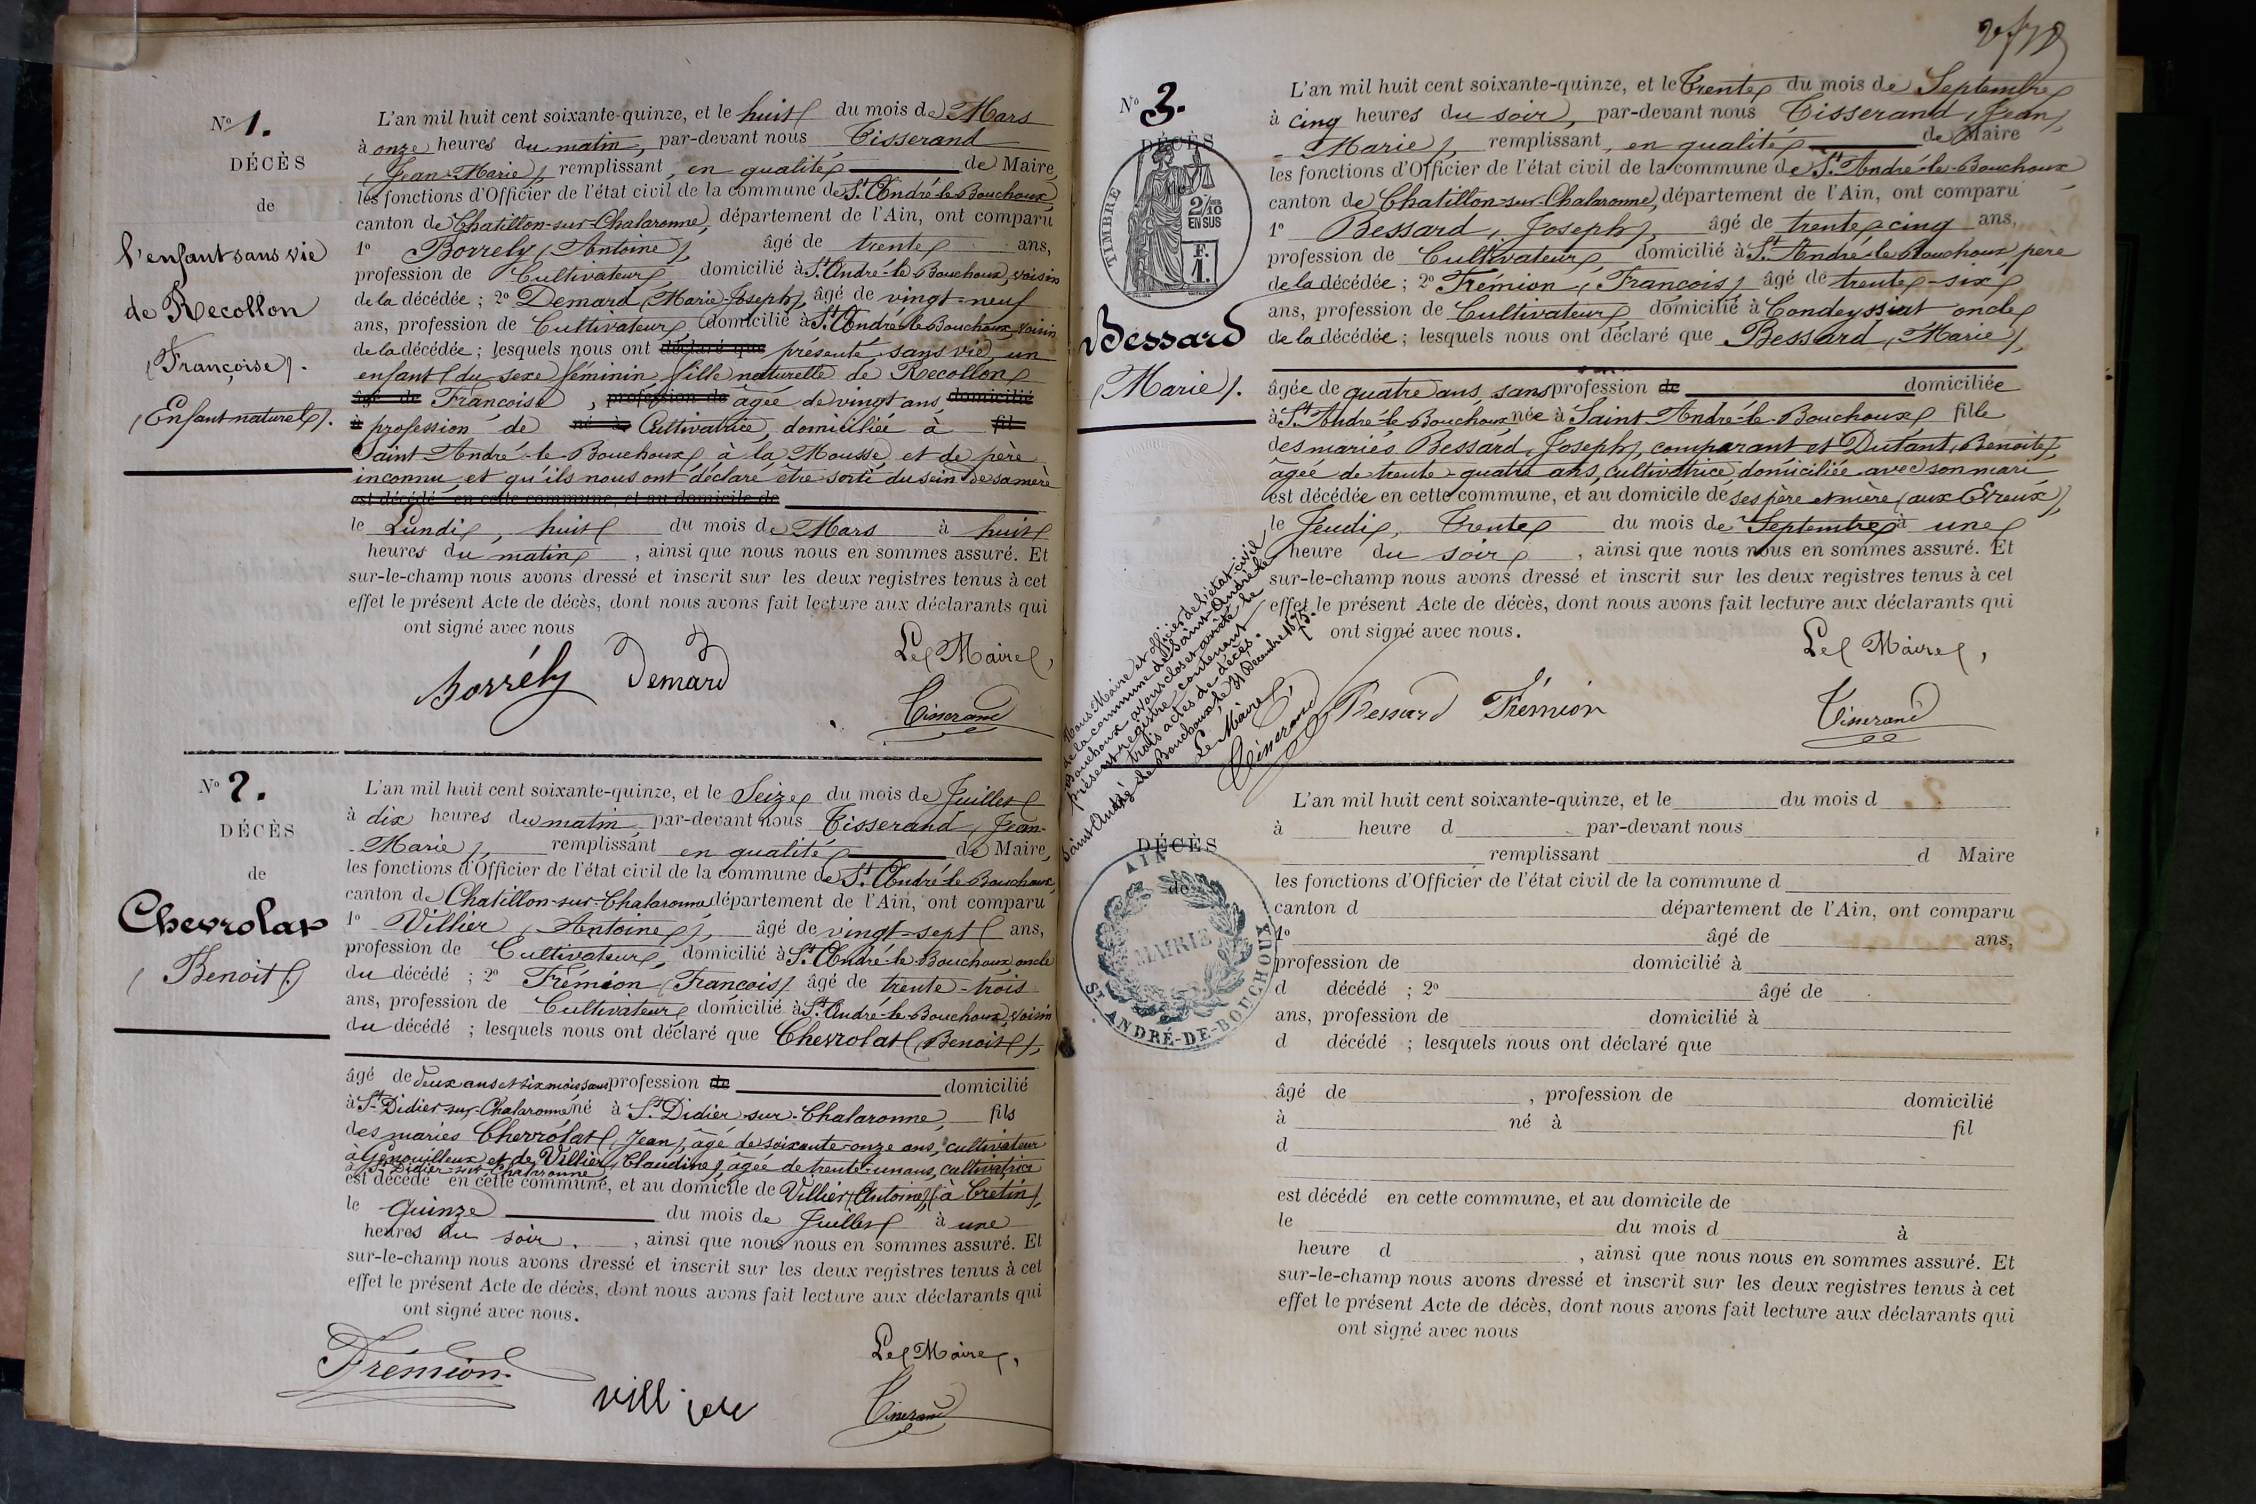 N° 1.
DÉCÈS
de
l'enfant sans vie
de Recollon
(Françoise).
(Enfant naturel).
L'an mil huit cent soixante-quinze, et le huit du mois de Mars
à onze heures du matin, par-devant nous Tisserand
(Jean-Marie) remplissant en qualité de Maire,
les fonctions d'Officier de l'état civil de la commune de St. André-le-Bouchoux
canton de Chatillon-sur-Chalaronne, département de l'Ain, ont comparu
1° Borrely (Antoine), âgé de trente ans,
profession de Cultivateur, domicilié à St. André-le-Bouchoux, voisin
de la décédée ; 2° Demard (Marie-Joseph), âgé de vingt-neuf
ans, profession de Cultivateur domicilié à St. André-le-Bouchoux, voisin
de la décédée ; lesquels nous ont déclaré que présenté sans vie, un
enfant du sexe féminin fille naturelle de Recollon
âgé de Françoise, profession de âgée de vingt ans, domicilié
à profession de né à Cultivatrice, domiciliée à fil
Saint André-le-Bouchoux à la Mousse et de père
inconnu et qu'ils nous ont déclaré être sorti du sein de sa mère
est décédé en cette commune, et au domicile de
le Lundi, huit du mois de Mars à huit
heures du matin, ainsi que nous nous en sommes assuré. Et
sur-le-champ nous avons dressé et inscrit sur les deux registres tenus à cet
effet le présent Acte de décès, dont nous avons fait lecture aux déclarants qui
ont signé avec nous
Le Maire,
Borrély Demard Tisserand
N° 2.
DÉCÈS
de
Chevrolat
(Benoit)
L'an mil huit cent soixante-quinze, et le Seize du mois de Juillet
à dix heures du matin par-devant nous Tisserand, Jean-
Marie), remplissant en qualité de Maire,
les fonctions d'Officier de l'état civil de la commune de St. André-le-Bouchoux,
canton de Chatillon-sur-Chalaronne département de l'Ain, ont comparu
1° Villier (Antoine), âgé de vingt-sept ans,
profession de Cultivateur, domicilié à St. André-le-Bouchoux oncle
du décédé ; 2° Frémion (François) âgé de trente-trois
ans, profession de Cultivateur domicilié à St. André-le-Bouchoux, voisin
du décédé ; lesquels nous ont déclaré que Chevrolat (Benoit),
âgé de deux ans et six mois sans profession de domicilié
à St. Didier-sur-Chalaronne né à St. Didier-sur-Chalaronne, fils
des mariés Chevrolat (Jean), âgé de soixante-onze ans, cultivateur
à Genouilleux et de Villier (Claudine), âgée de trente-un ans, cultivatrice
à St. Didier-sur-Chalaronne
est décédé en cette commune, et au domicile de Villier (Antoine) (à Cretin),
le quinze du mois de Juillet à une
heures du soir, ainsi que nous nous en sommes assuré. Et
sur-le-champ nous avons dressé et inscrit sur les deux registres tenus à cet
effet le présent Acte de décès, dont nous avons fait lecture aux déclarants qui
ont signé avec nous.
Le Maire,
Frémion Tisserand
N° 3.
DÉCÈS
de
TIMBRE
2/10 EN SUS
F. 1.
Bessard
(Marie).
L'an mil huit cent soixante-quinze, et le Trente du mois de Septembre
à cinq heures du soir, par-devant nous Tisserand (Jean
Marie), remplissant en qualité de Maire
les fonctions d'Officier de l'état civil de la commune de St. André-le-Bouchoux
canton de Chatillon-sur-Chalaronne, département de l'Ain, ont comparu
1° Bessard, Joseph), âgé de trente cinq ans,
profession de Cultivateur, domicilié à St. André-le-Bouchoux père
de la décédée ; 2° Frémion, (François) âgé de trente-six
ans, profession de Cultivateur domicilié à Condeyssiat oncle
de la décédée ; lesquels nous ont déclaré que Bessard (Marie),
âgée de quatre ans sans profession de domiciliée
à St. André-le-Bouchoux née à Saint André-le-Bouchoux fille
des mariés Bessard, Joseph), comparant et Dutant, Benoite),
âgée de trente-quatre ans, cultivatrice, domiciliée avec son mari
est décédée en cette commune, et au domicile de ses père et mère (aux Evreux),
le Jeudi, Trente du mois de Septembre à une
heure du soir, ainsi que nous nous en sommes assuré. Et
sur-le-champ nous avons dressé et inscrit sur les deux registres tenus à cet
effet le présent Acte de décès, dont nous avons fait lecture aux déclarants qui
ont signé avec nous.
Le Maire,
Bessard Frémion Tisserand
Nous Maire et officier de l'état civil
de la commune de Saint-André-le
Bouchoux avons clos et arrêté le
présent registre contenant
trois actes de décès.
Saint André-le-Bouchoux, le 31 Décembre 1875.
Le Maire,
Tisserand
DÉCÈS
de
AIN
MAIRIE
ST. ANDRÉ-DE-BOUCHOUX
L'an mil huit cent soixante-quinze, et le du mois d
à heure d par-devant nous
remplissant d Maire
les fonctions d'Officier de l'état civil de la commune d
canton d département de l'Ain, ont comparu
1° âgé de ans,
profession de domicilié à
d décédé ; 2° âgé de
ans, profession de domicilié à
d décédé ; lesquels nous ont déclaré que
âgé de , profession de domicilié
à né à fil
d
est décédé en cette commune, et au domicile de
le du mois d à
heure d , ainsi que nous nous en sommes assuré. Et
sur-le-champ nous avons dressé et inscrit sur les deux registres tenus à cet
effet le présent Acte de décès, dont nous avons fait lecture aux déclarants qui
ont signé avec nous